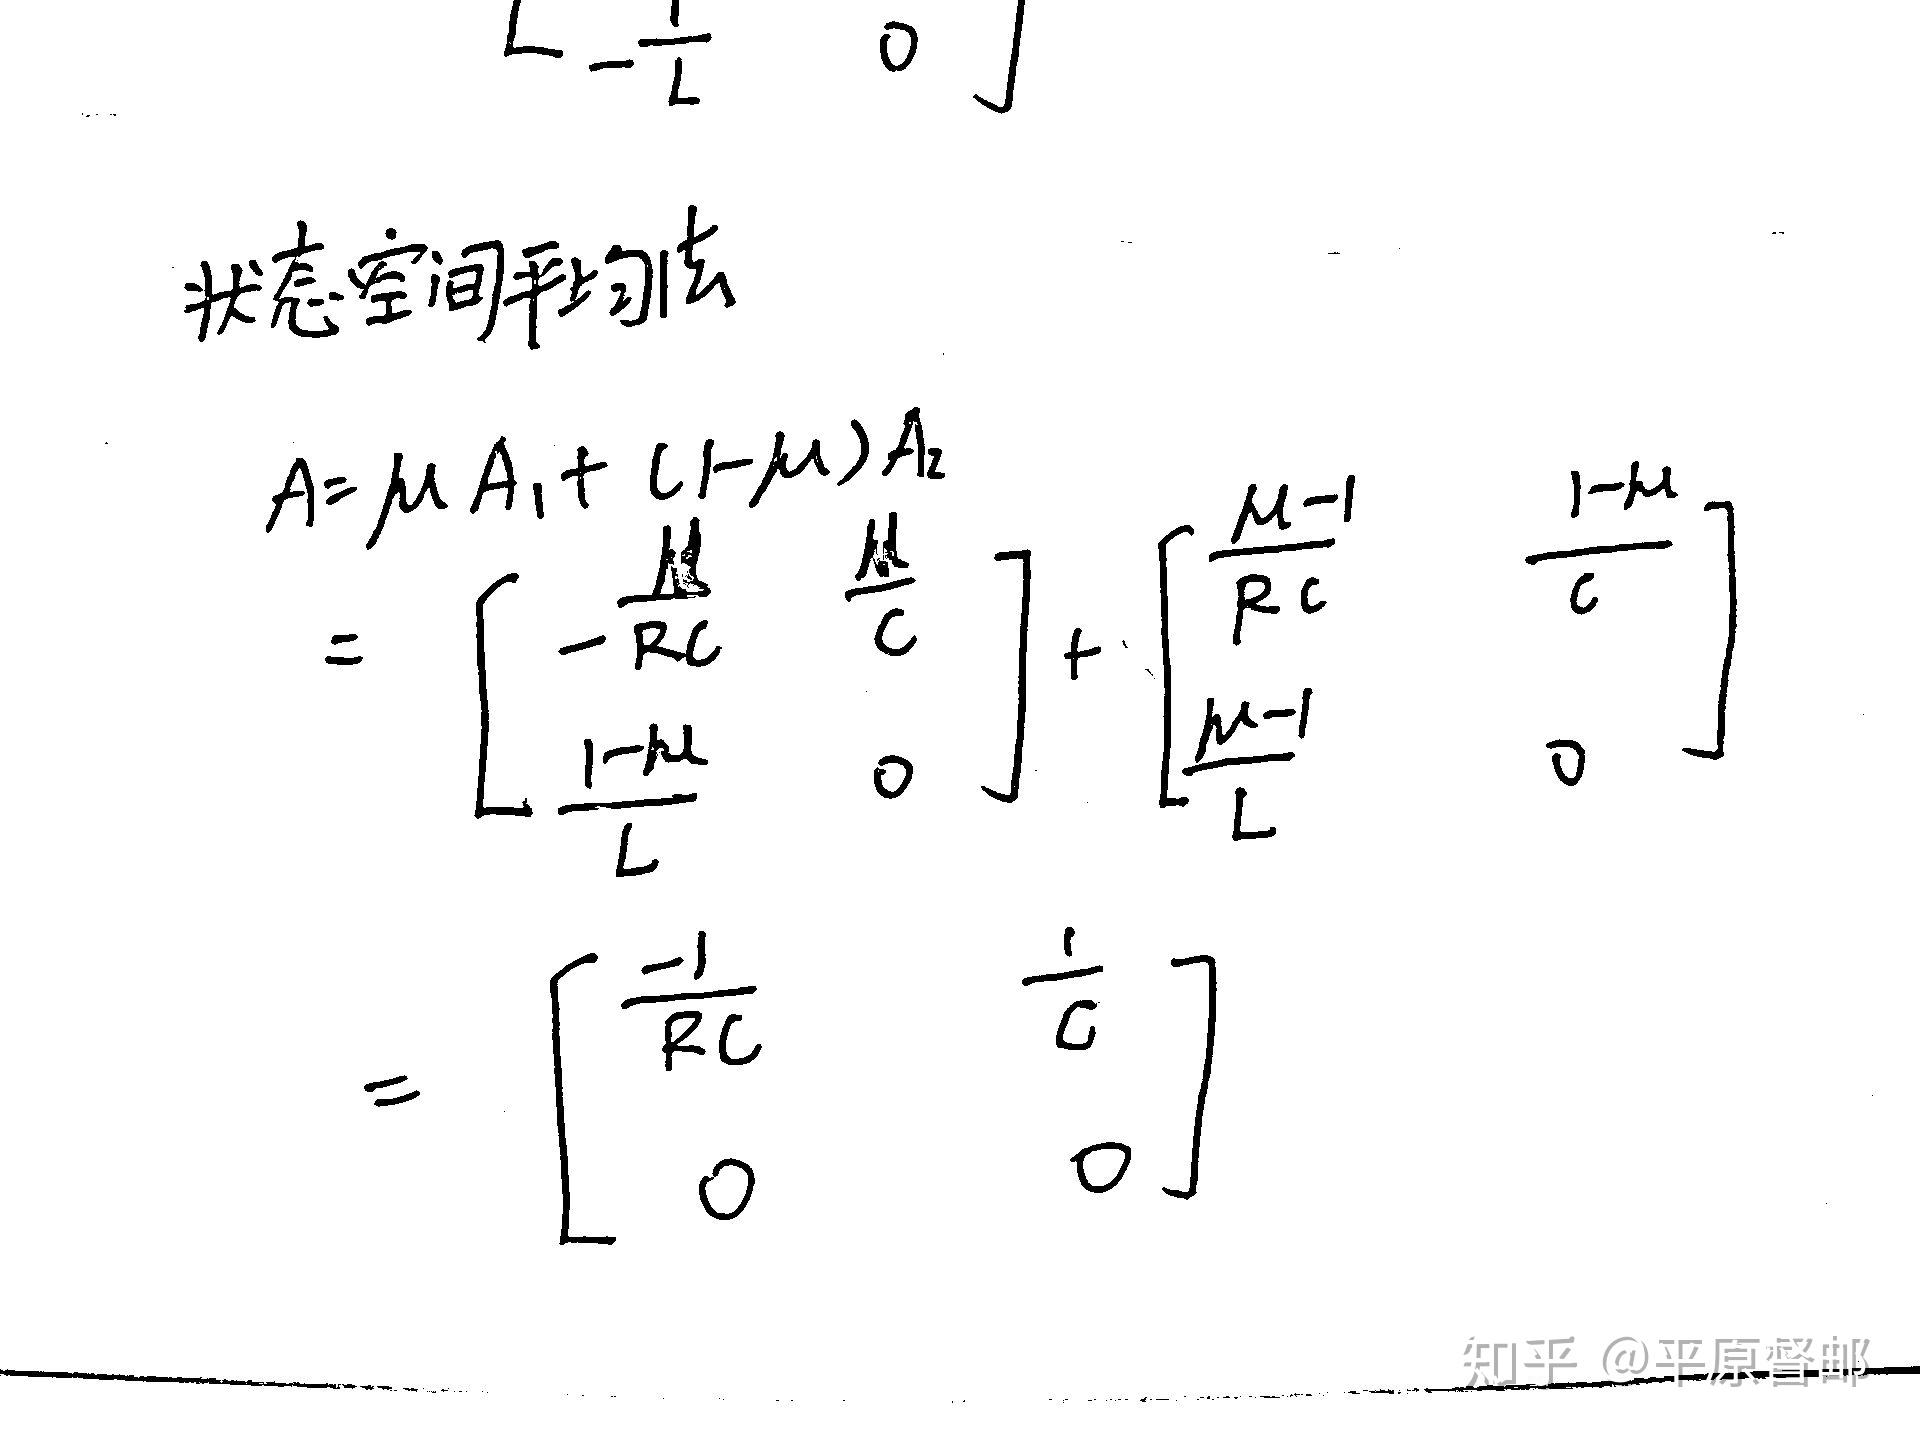 -1/L 0
状态空间平均法
A=μA₁+(1-μ)A₂
= [ -μ/RC μ/C ; 1-μ/L 0 ] + [ μ-1/RC 1-μ/C ; μ-1/L 0 ]
= [ -1/RC 1/C ; 0 0 ]
知乎 @平原督邮